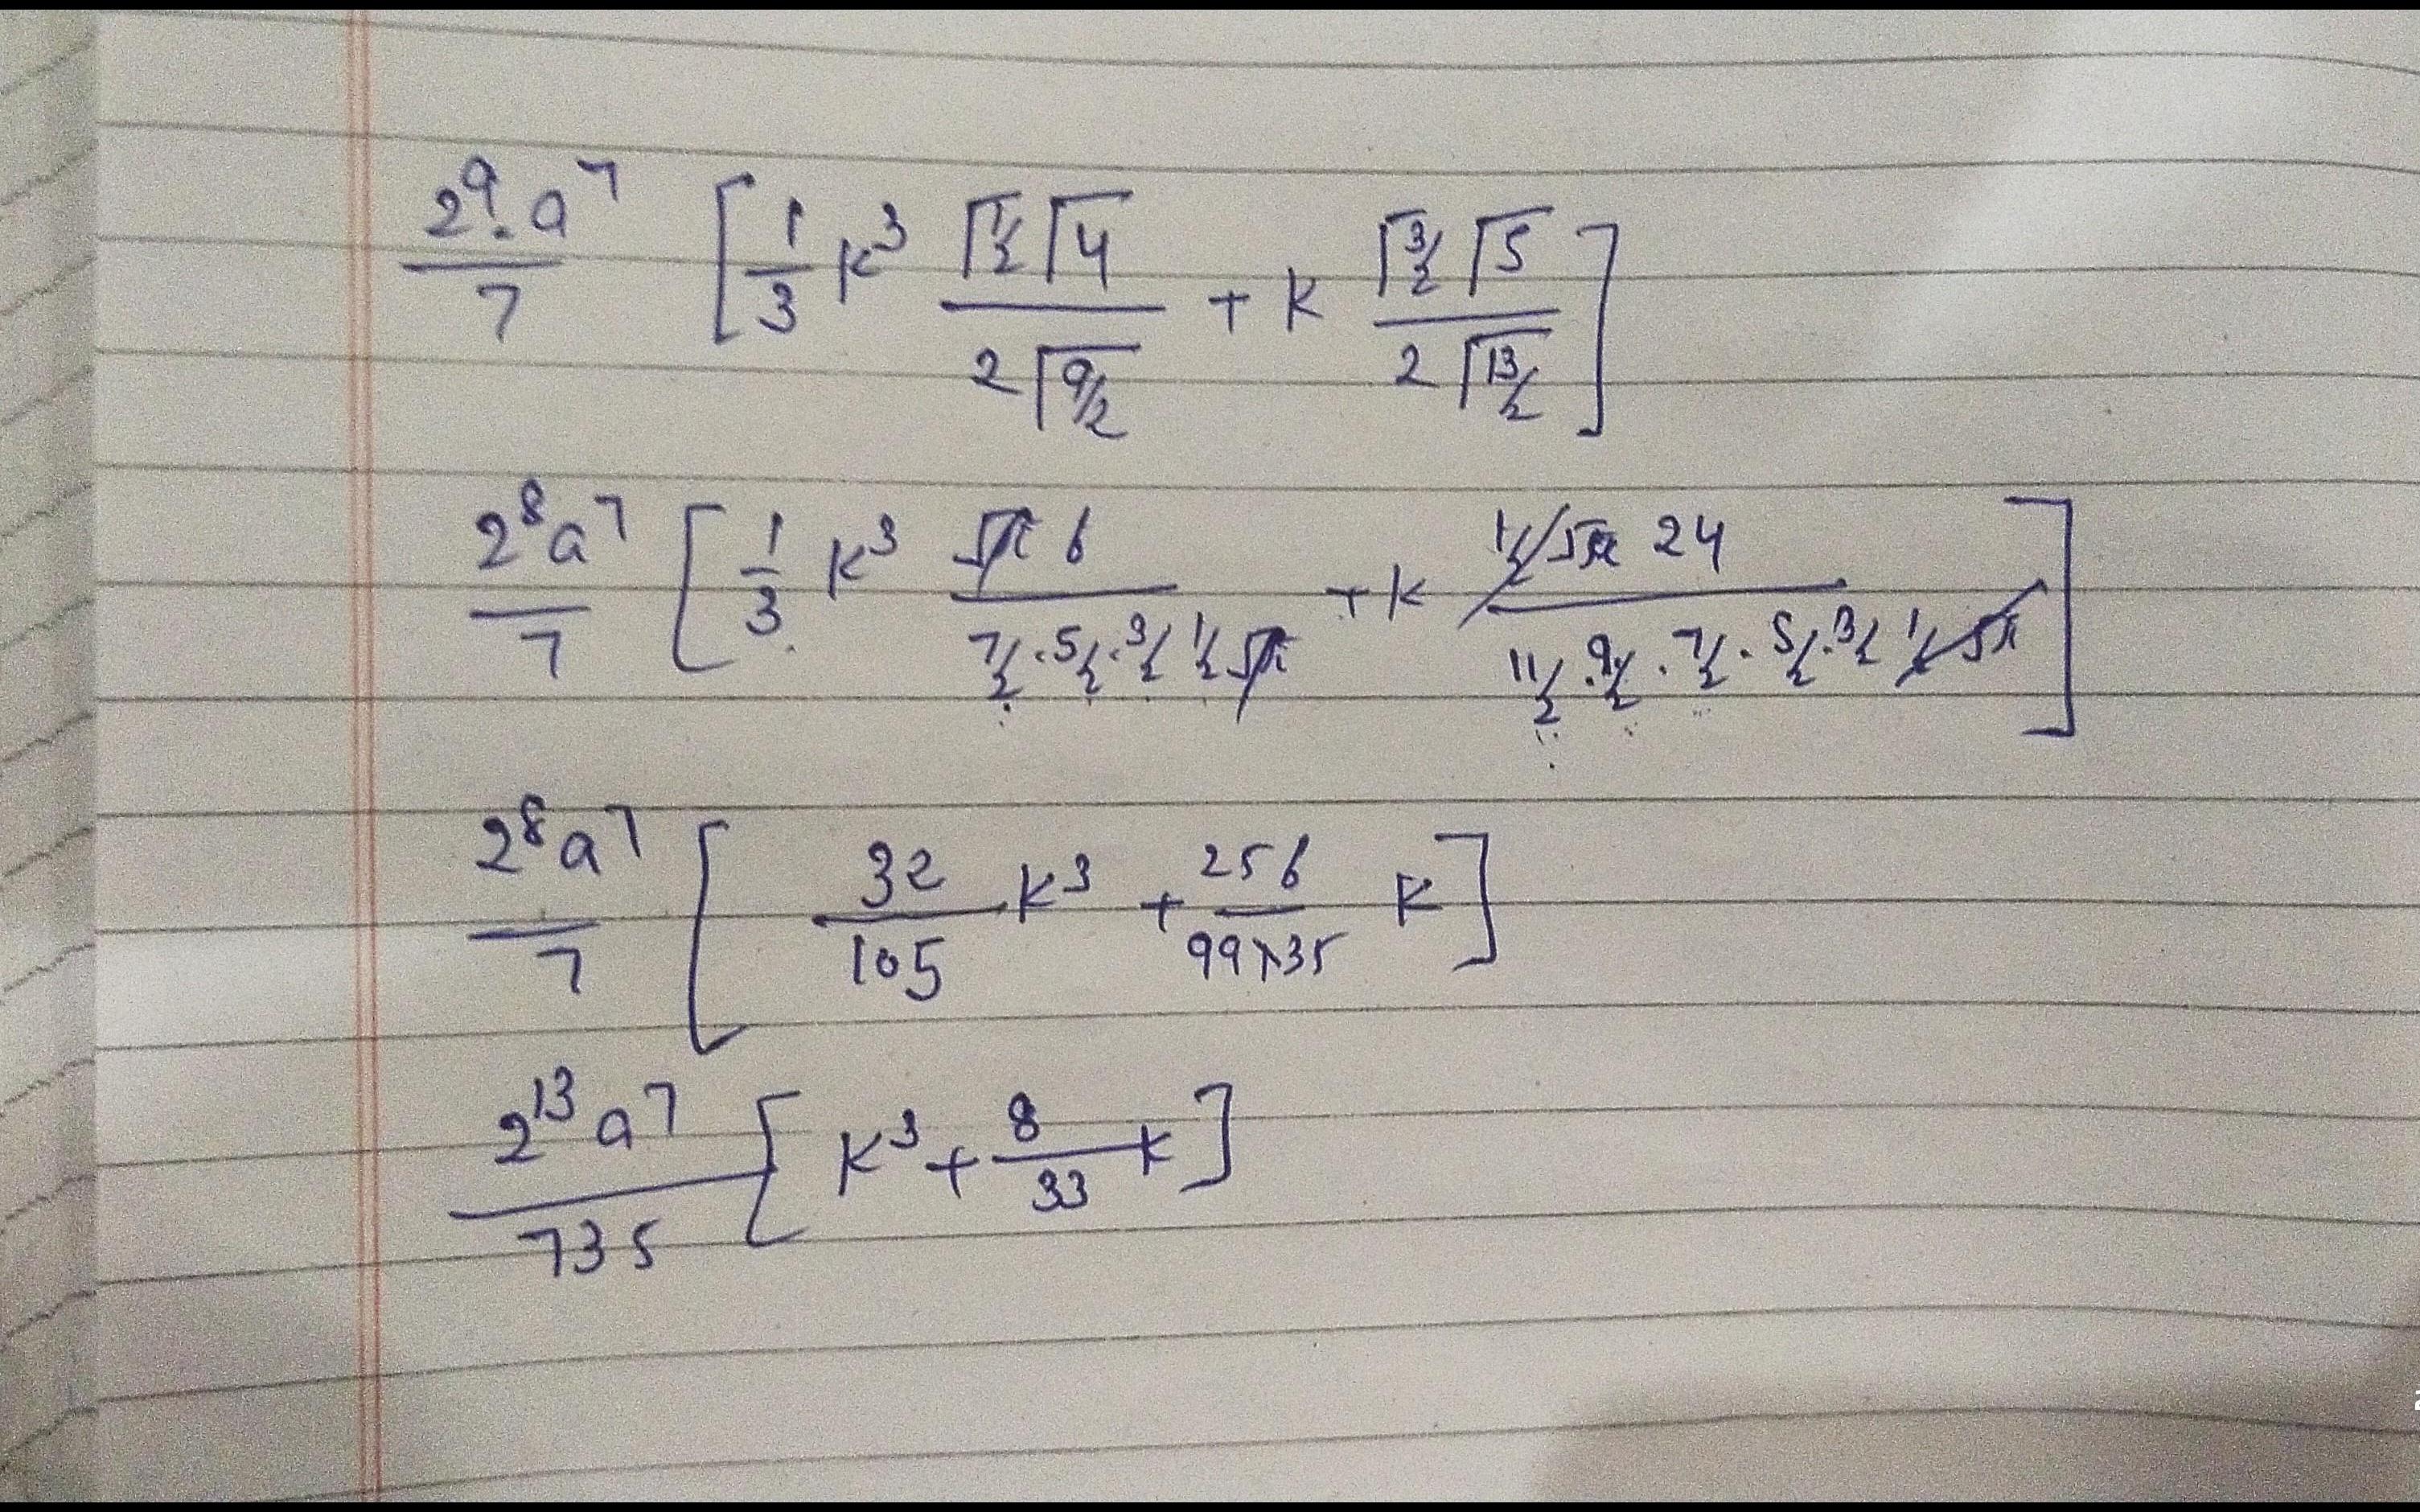 2⁹·a⁷/7 [1/3 K³ Γ1/2 Γ4 / 2Γ9/2 + K Γ3/2 Γ5 / 2Γ13/2]
2⁸a⁷/7 [1/3 K³ √π 6 / 7/2·5/2·3/2 1/2 √π + K 1/2 √π 24 / 11/2·9/2·7/2·5/2·3/2 1/2 √π]
2⁸a⁷/7 [32/105 K³ + 256/99×35 K]
2¹³a⁷/735 [K³ + 8/33 K]